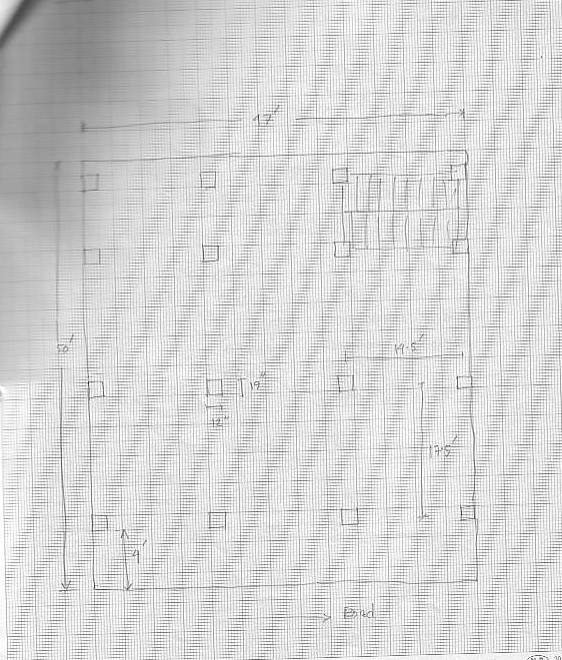 47'
50'
14.5'
19"
12"
17.5'
4'
Road